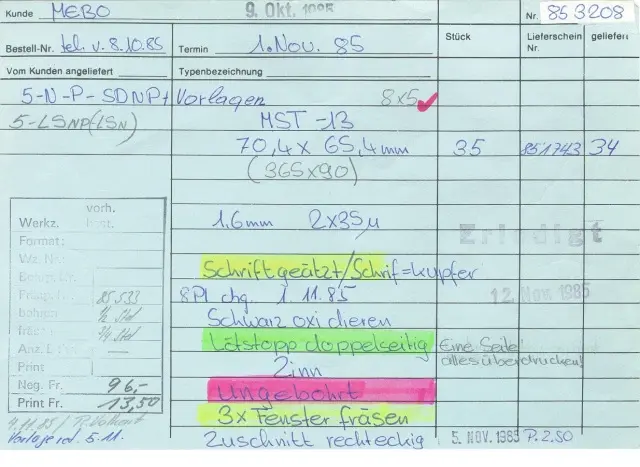 Kunde MEBO 9. Okt. 1985 Nr. 853208
Bestell-Nr. tel. v. 8.10.85 Termin 1. Nov. 85 Stück Lieferschein Nr. geliefert
Vom Kunden angeliefert Typenbezeichnung
5-N-P-SDNP+ Vorlagen 8x5
5-LSNP(LSN) MST-13
70,4 x 65,4mm 35 851743 34
(365x90)
vorh.
Werkz. best. 1,6mm 2x35µ
Format: Erledigt
Wz. Nr.
Schrift geätzt/Schrif=kupfer
85533 8Pl chg. 1.11.85 12. Nov. 1985
bohren ½ Std Schwarz oxidieren
¾ Std Lötstopp doppelseitig Eine Seite
Anz. alles überdrucken!
Print Zinn
Neg. Fr. 96,- Ungebohrt
Print Fr. 13,50 3x Fenster fräsen
4.11.85
Vorlage rd. 5.11. Zuschnitt rechteckig 5. NOV. 1985 P. 2.50